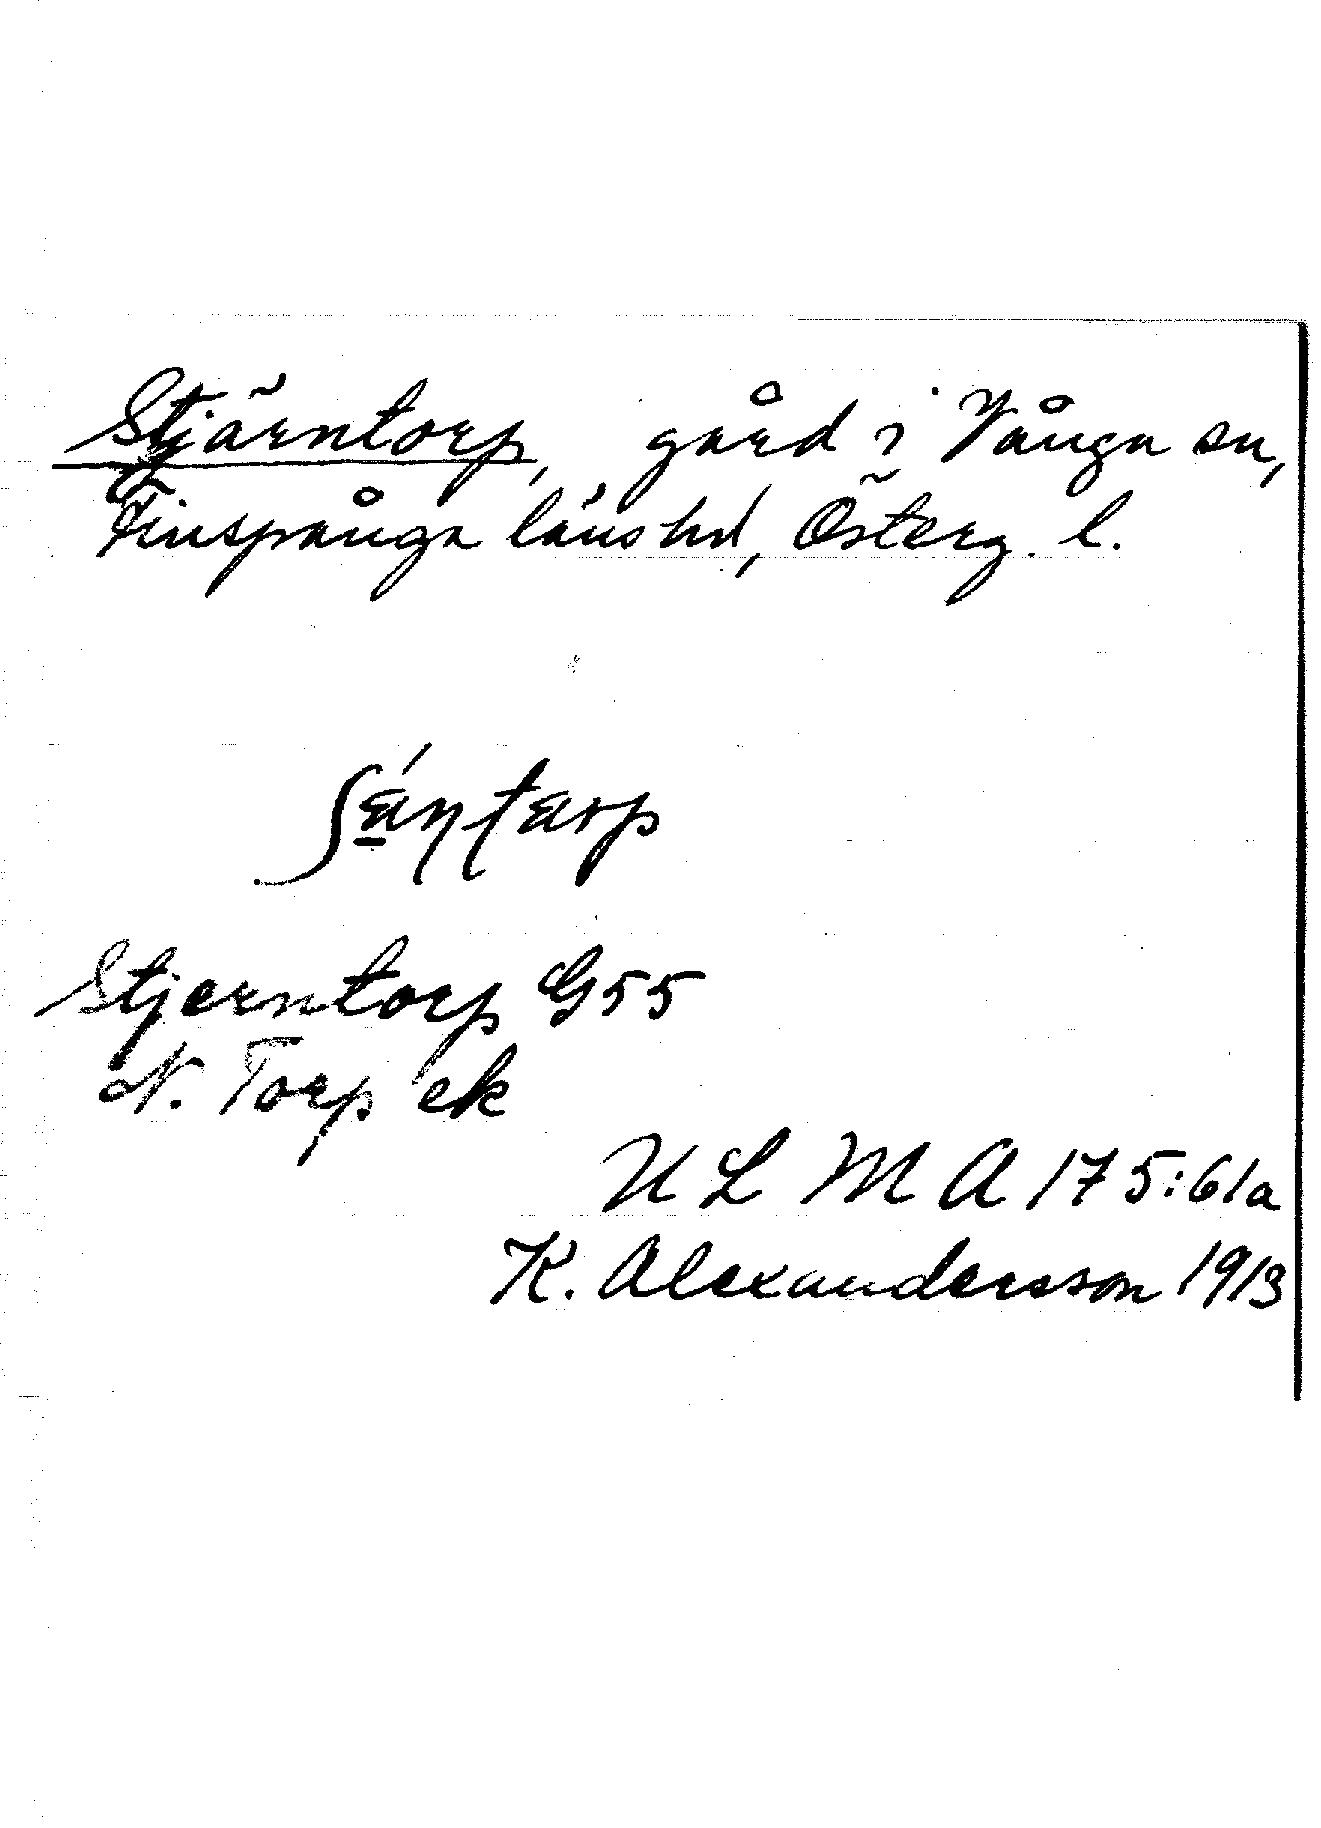 Stjärntorp, gård i Vånga sn,
Finspånga länshd, Österg. l.
Stjerntorp G55
N. Torp ek
ULMA 175:61a
K. Alexandersson 1913